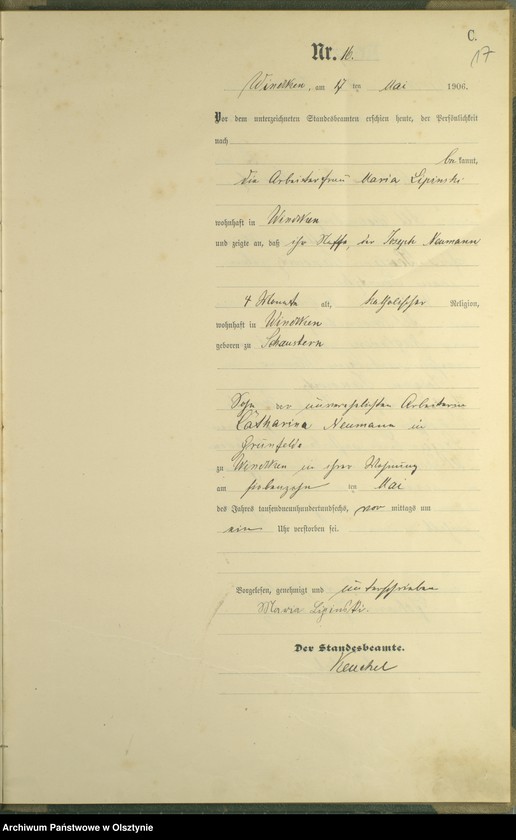 C.
17
Nr. 16.
Windtken, am 17 ten Mai 1906.
Vor dem unterzeichneten Standesbeamten erschien heute, der Persönlichkeit
nach
be kannt,
die Arbeiterfrau Maria Lipinski
wohnhaft in Windtken
und zeigte an, daß ihr Neffe, der Joseph Neumann
4 Monate alt, katholischer Religion,
wohnhaft in Windtken
geboren zu Schaustern
Sohn der unverehelichten Arbeiterin
Catharina Neumann in
Grünfelde
zu Windtken in ihrer Wohnung
am siebenzehn ten Mai
des Jahres tausendneunhundertundsechs, vor mittags um
ein Uhr verstorben sei.
Vorgelesen, genehmigt und unterschrieben
Maria Lipinski.
Der Standesbeamte.
Keuchel
Archiwum Państwowe w Olsztynie